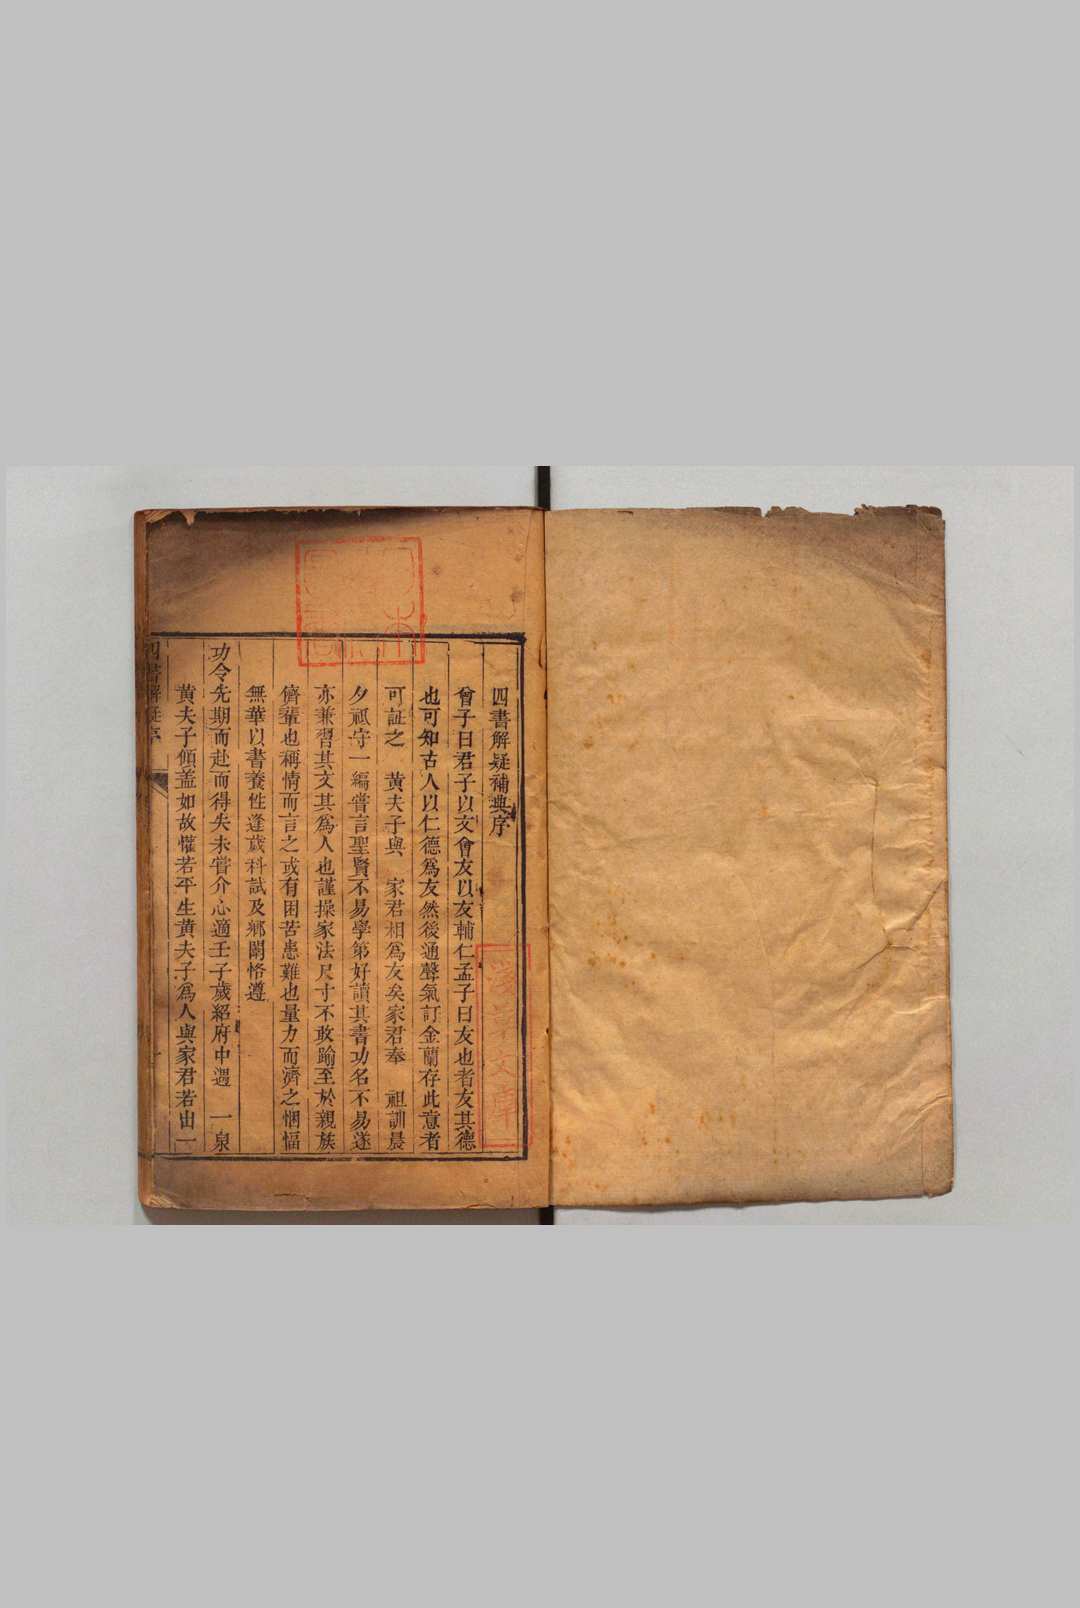 四書解疑補典序
曾子曰君子以文會友以友輔仁孟子曰友也者友其德
也可知古人以仁德爲友然後通聲氣訂金蘭存此意者
可証之　黄夫子與　家君相爲友矣家君奉　祖訓晨
夕祗守一編嘗言聖賢不易學第好讀其書功名不易遂
亦兼習其文其爲人也謹操家法尺寸不敢踰至於親族
儕輩也稱情而言之或有困苦患難也量力而濟之悃愊
無華以書養性逢歲科試及鄉闈恪遵
功令先期而赴而得失未嘗介心適壬子歲紹府中遇　一泉
黄夫子傾盖如故懽若平生黄夫子爲人與家君若出一
四書解疑序
一
文庫